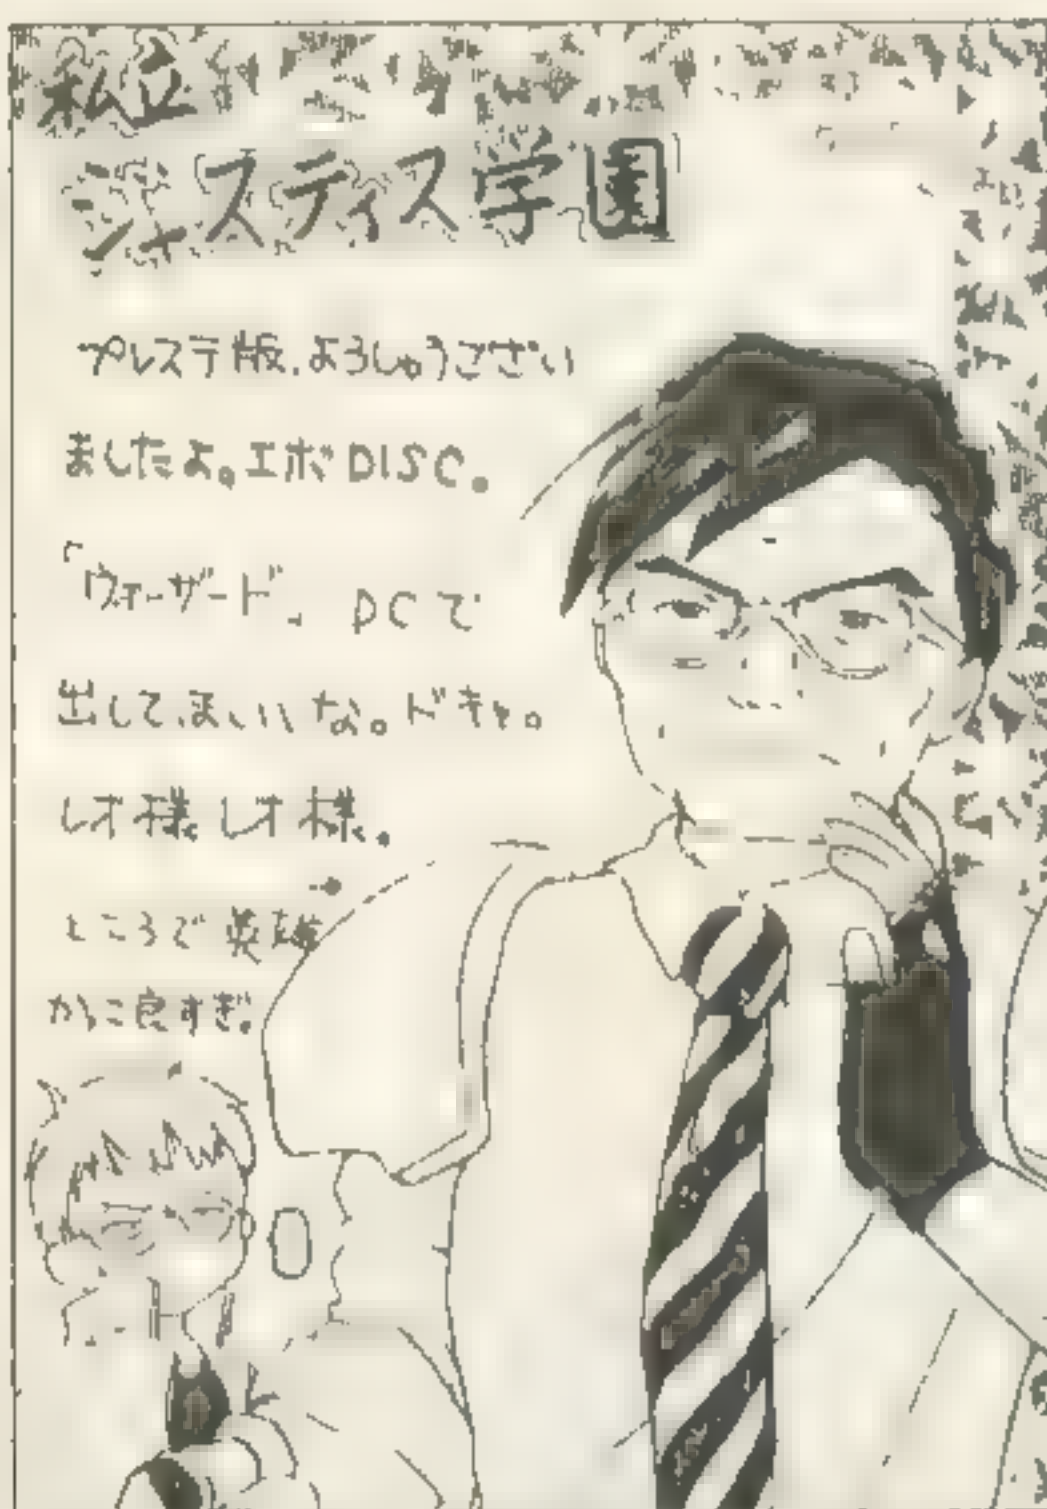 私立
ジャスティス学園
プレステ版、よろしゅうござい
ましたよ。エボDISC。
「ウォーザード」DCで
出してほしいな。ドキャ。
レオ様レオ様。
ところで英雄
かっこ良すぎ。